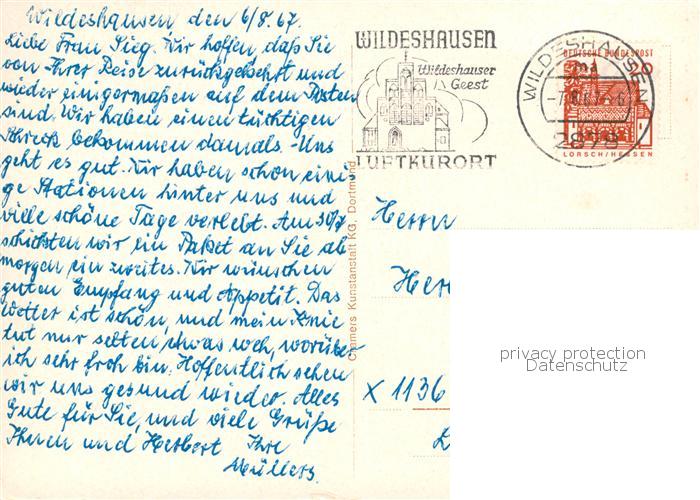 Wildeshausen den 6/8. 67.
Liebe Frau Sieg. Wir hoffen, daß Sie
von Ihrer Reise zurückgekehrt und
wieder einigermaßen auf dem Posten
sind. Wir haben einen tüchtigen
Schreck bekommen damals. Uns
geht es gut. Wir haben schon eini
ge Stationen hinter uns und
viele schöne Tage verlebt. Am 30/7
schickten wir ein Paket an Sie ab
morgen ein zweites. Wir wünschen
guten Empfang und Appetit. Das
Wetter ist schön, und mein Knie
tut nur selten etwas weh, worüber
ich sehr froh bin. Hoffentlich sehen
wir uns gesund wieder. Alles
Gute für Sie, und viele Grüße
Ihnen und Herbert Ihre
Müllers.
Cramers Kunstanstalt KG, Dortmund
WILDESHAUSEN
Wildeshauser
Geest
LUFTKURORT
WILDESHAUSEN
2878
DEUTSCHE BUNDESPOST
20
LORSCH/HESSEN
Herrn
Her
X 1136
privacy protection
Datenschutz